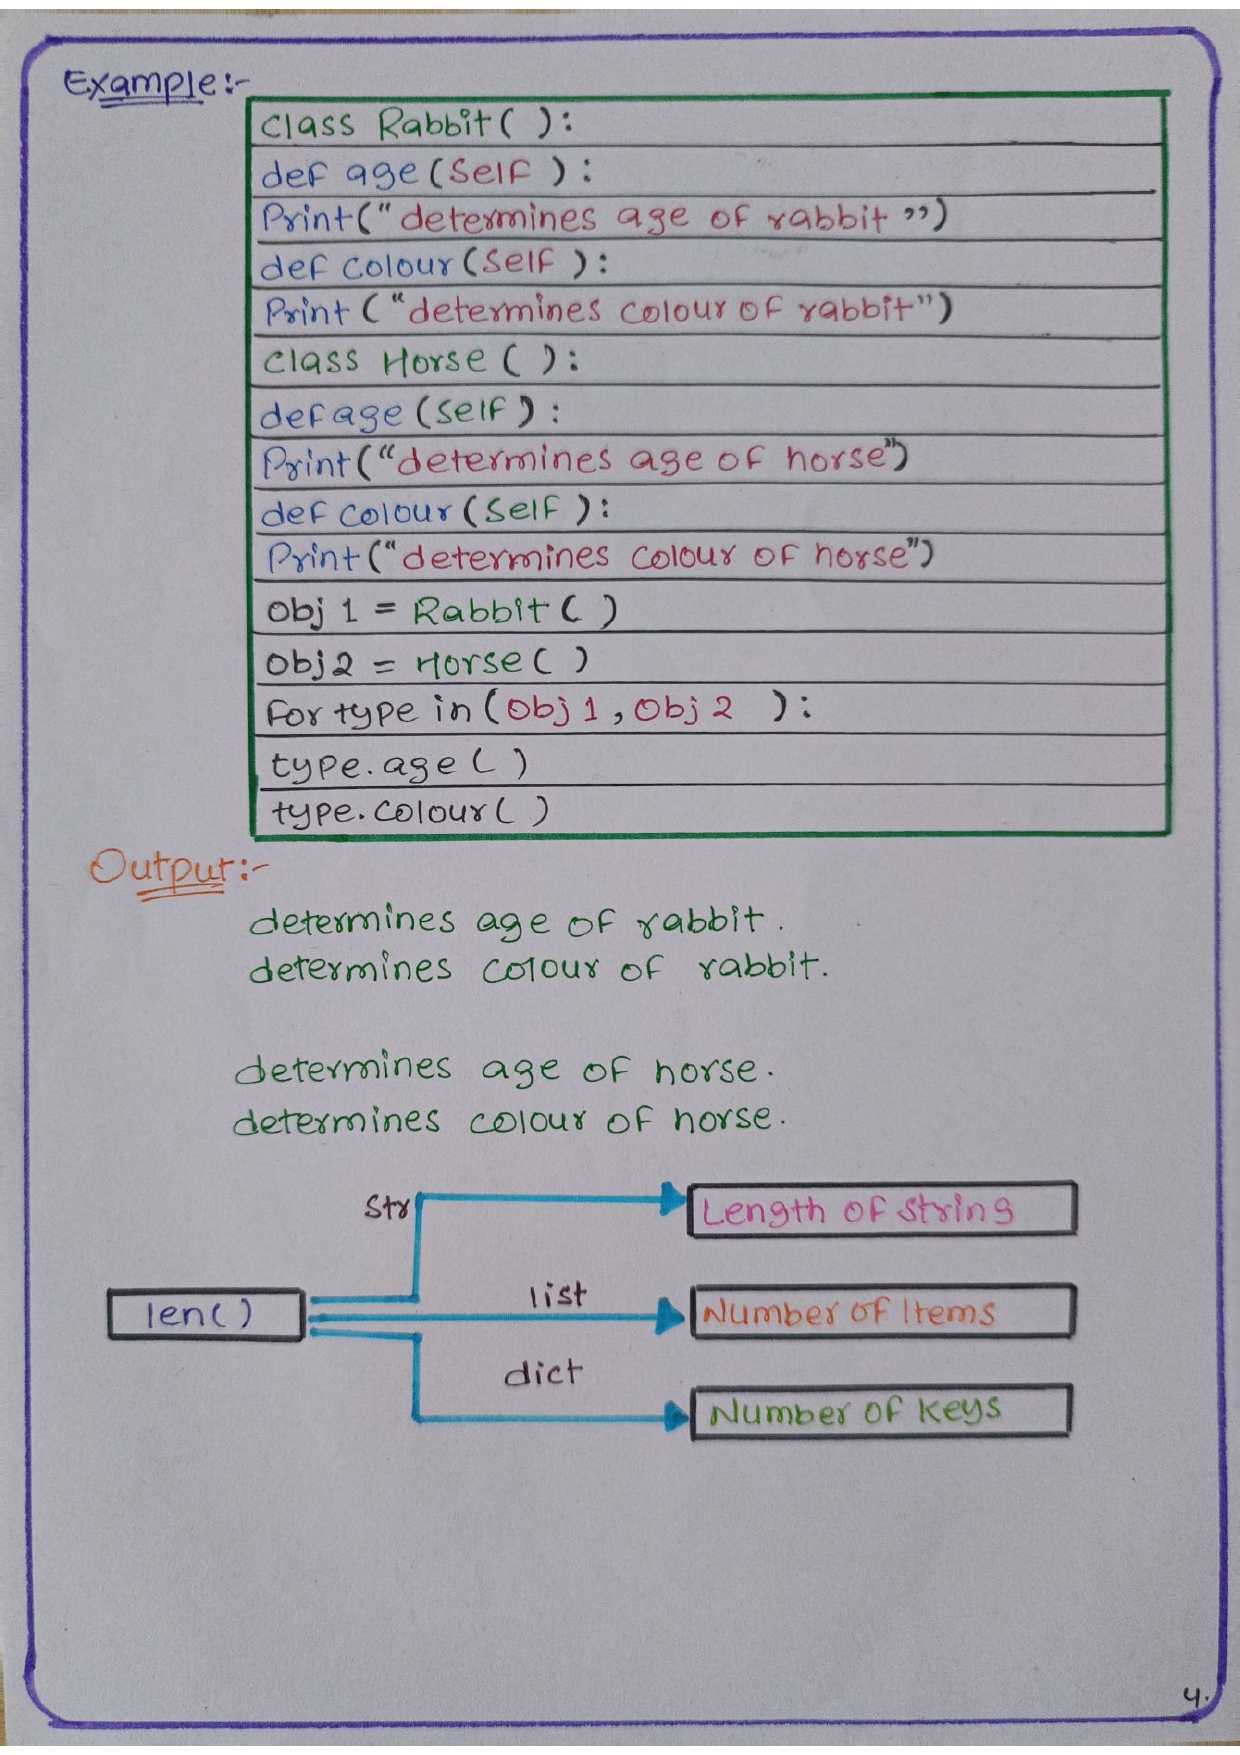 Example:-
class Rabbit( ):
def age(Self ):
Print("determines age of rabbit ")
def colour(Self ):
Print ("determines colour of rabbit")
class Horse ( ):
def age (Self ) :
Print("determines age of horse")
def colour (Self ):
Print("determines colour of horse")
Obj 1 = Rabbit ( )
Obj 2 = Horse( )
For type in (Obj 1, Obj 2 ):
type.age ( )
type.colour( )
Output:-
determines age of rabbit.
determines colour of rabbit.
determines age of horse.
determines colour of horse.
Str
Length of String
list
len( )
Number of Items
dict
Number of keys
4.